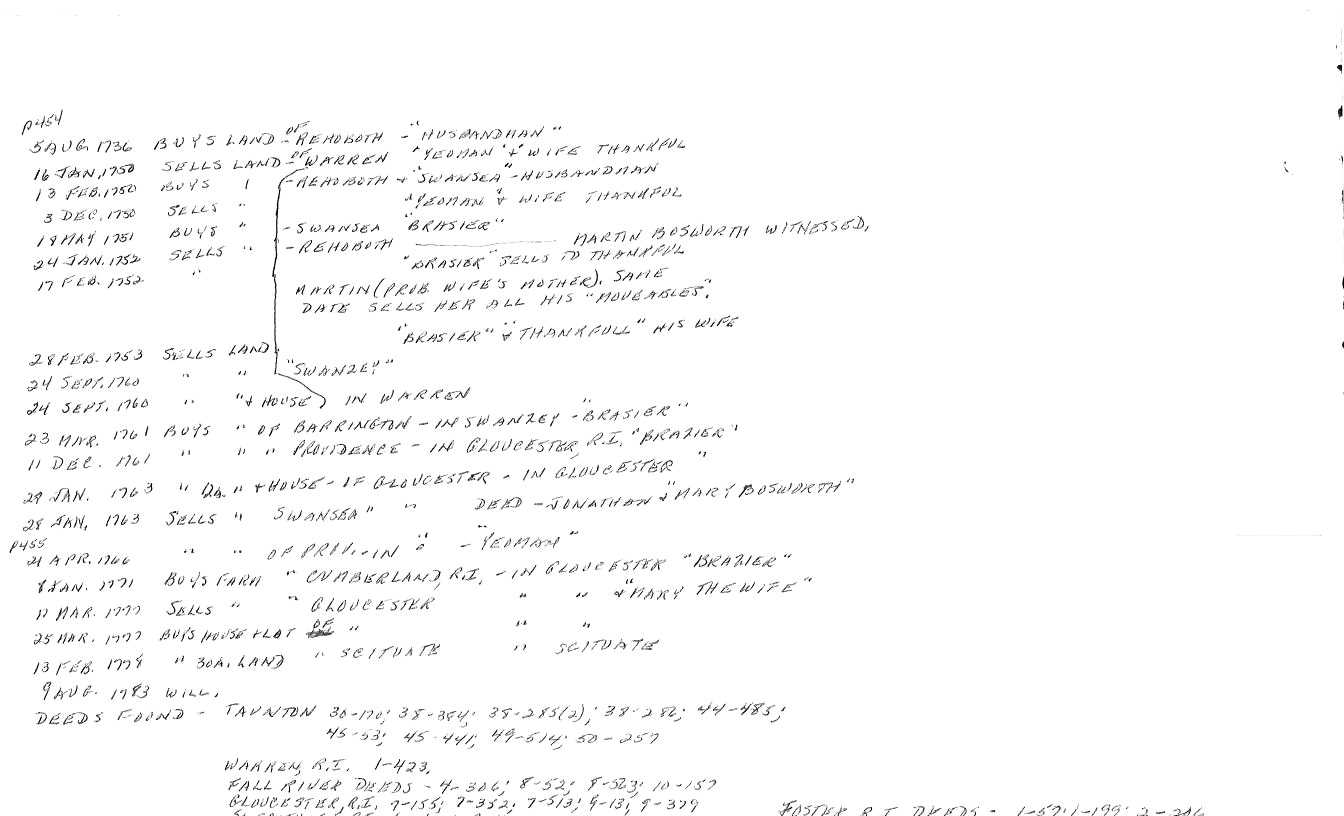 P454
5 AUG. 1736 BUYS LAND - OF REHOBOTH - "HUSBANDMAN"
16 JAN, 1750 SELLS LAND - OF WARREN "YEOMAN" & WIFE THANKFUL
13 FEB. 1750 BUYS " - REHOBOTH & "SWANSEA" - HUSBANDMAN
3 DEC. 1750 SELLS " "YEOMAN" & WIFE THANKFUL
18 MAY 1751 BUYS " - SWANSEA "BRASIER"
24 JAN. 1752 SELLS " - REHOBOTH MARTIN BOSWORTH WITNESSED,
17 FEB. 1752 " "BRASIER" SELLS TO THANKFUL
MARTIN (PROB. WIFE'S MOTHER). SAME
DATE SELLS HER ALL HIS "MOVEABLES".
"BRASIER" & "THANKFULL" HIS WIFE
28 FEB. 1753 SELLS LAND
24 SEPT. 1760 " " "SWANZEY"
24 SEPT. 1760 " " & HOUSE) IN WARREN
23 MAR. 1761 BUYS " OF BARRINGTON - IN SWANZEY - "BRASIER"
11 DEC. 1761 " " " PROVIDENCE - IN GLOUCESTER, R.I. "BRAZIER"
29 JAN. 1763 " " & HOUSE - OF GLOUCESTER - IN GLOUCESTER "
28 JAN, 1763 SELLS " SWANSEA" " DEED - JONATHAN & "MARY BOSWORTH"
P455
21 APR. 1766 " " OF PROV. - IN " - "YEOMAN"
8 JAN. 1771 BUYS FARM " CUMBERLAND, R.I. - IN GLOUCESTER "BRAZIER"
17 MAR. 1777 SELLS " " GLOUCESTER " " & "MARY THE WIFE"
25 MAR. 1777 BUYS HOUSE & LOT OF " " "
13 FEB. 1778 " 30A. LAND " SCITUATE " SCITUATE
9 AUG. 1783 WILL.
DEEDS FOUND - TAUNTON 30-170; 38-384; 38-285(2); 38-286; 44-485;
45-53; 45-441; 49-514; 50-257
WARREN, R.I. 1-423.
FALL RIVER DEEDS - 4-306; 8-52; 8-563; 10-157
GLOUCESTER, R.I. 7-155; 7-352; 7-513; 9-13; 9-379
FOSTER R.I. DEEDS - 1-59; 1-199; 2-206